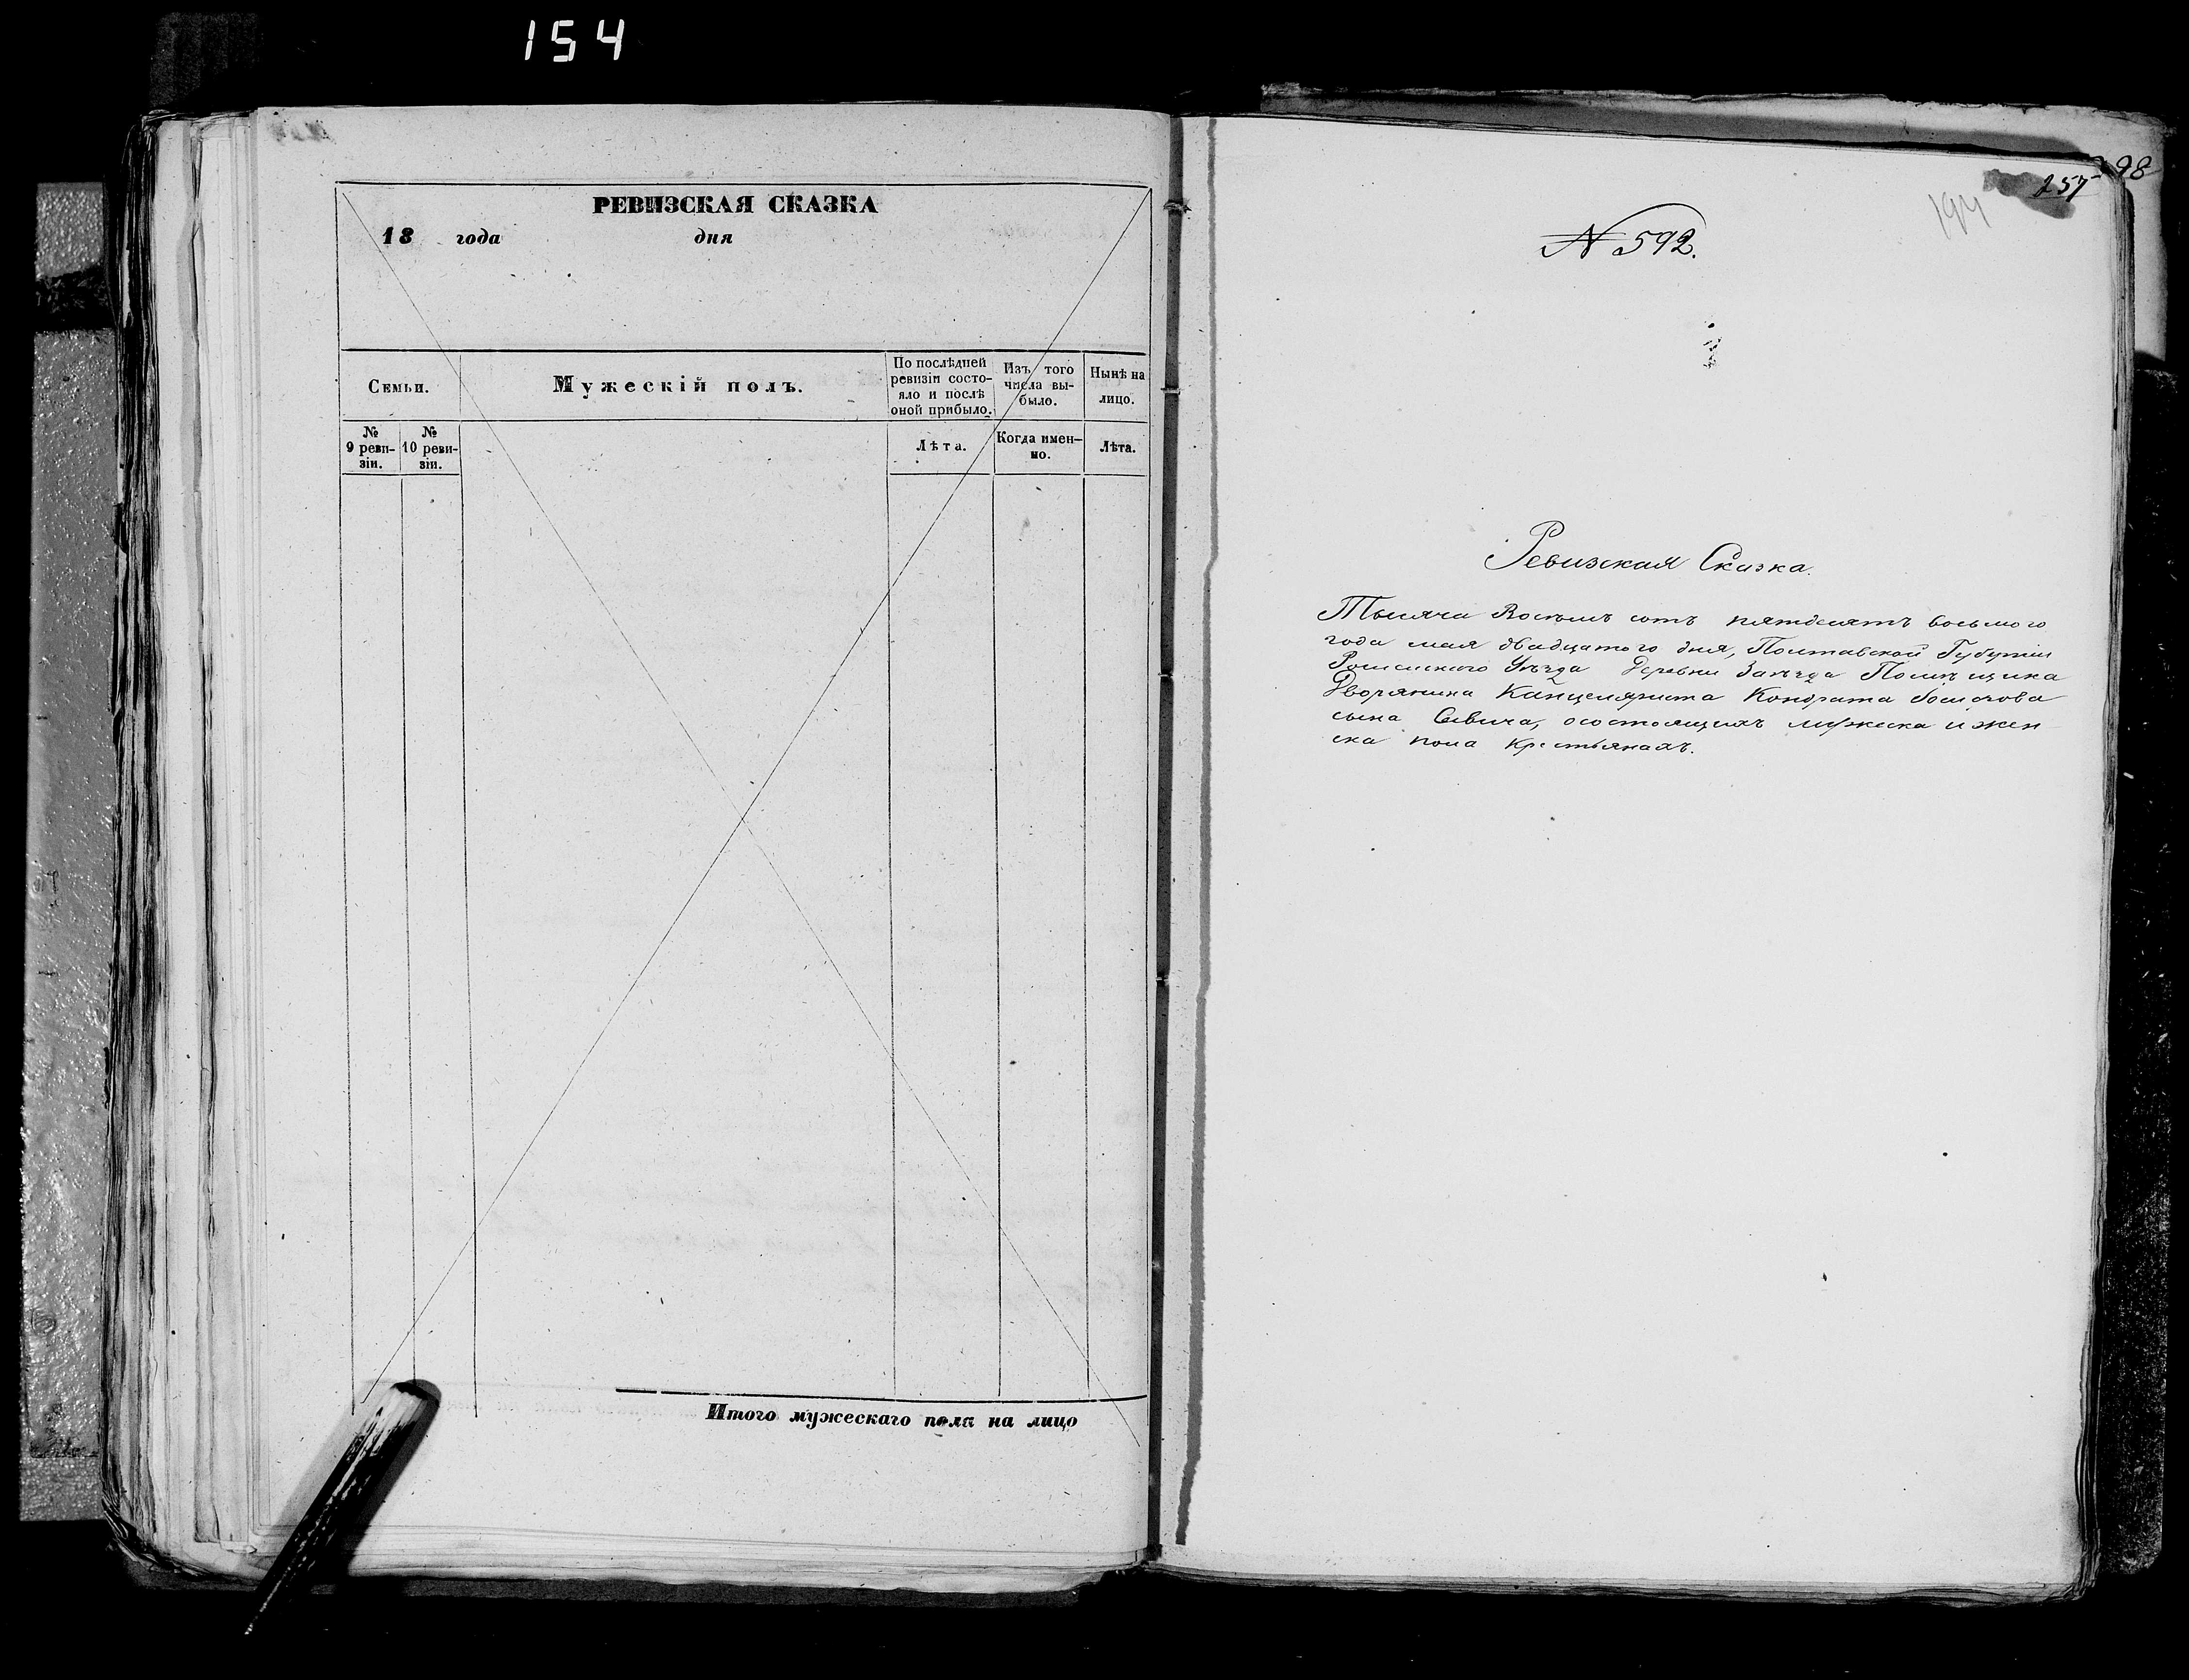 154
РЕВИЗСКАЯ СКАЗКА
18 года дня
Семьи.
Мужескій полъ.
По послѣдней
ревизіи состо-
яло и послѣ
оной прибыло.
Изъ того
числа вы-
было.
Нынѣ на
лицо.
№
9 реви-
зіи.
№
10 реви-
зіи.
Лѣта.
Когда имен-
но.
Лѣта.
Итого мужескаго пола на лицо
98
257
194
N 592.
Ревизская Сказка.
Тысяча Восемь сотъ пятдесятъ восьмого
года мая двадцатого дня, Полтавской Губерніи
Роменского Уѣзда Деревни Заезда Помѣщика
Дворянина Канцеляриста Кондрата
сына Савича, осостоящихъ мужеска и жен
ска пола крестьянахъ.